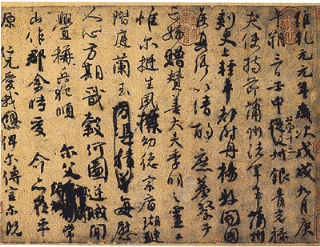 維乾元元年歲次戊戌九月庚
午朔三日壬申第十三叔銀青光祿
夫使持節蒲州諸軍事蒲州
刺史上輕車都尉丹楊縣開國
侯真卿以清酌庶羞祭于
亡姪贈贊善大夫季明之靈
惟爾挺生夙標幼德宗廟瑚璉
階庭蘭玉每慰
人心方期戩穀何圖逆賊閒
釁稱兵犯順爾父常
山作郡余時受命亦在平
原仁兄愛我俾爾傳言爾既